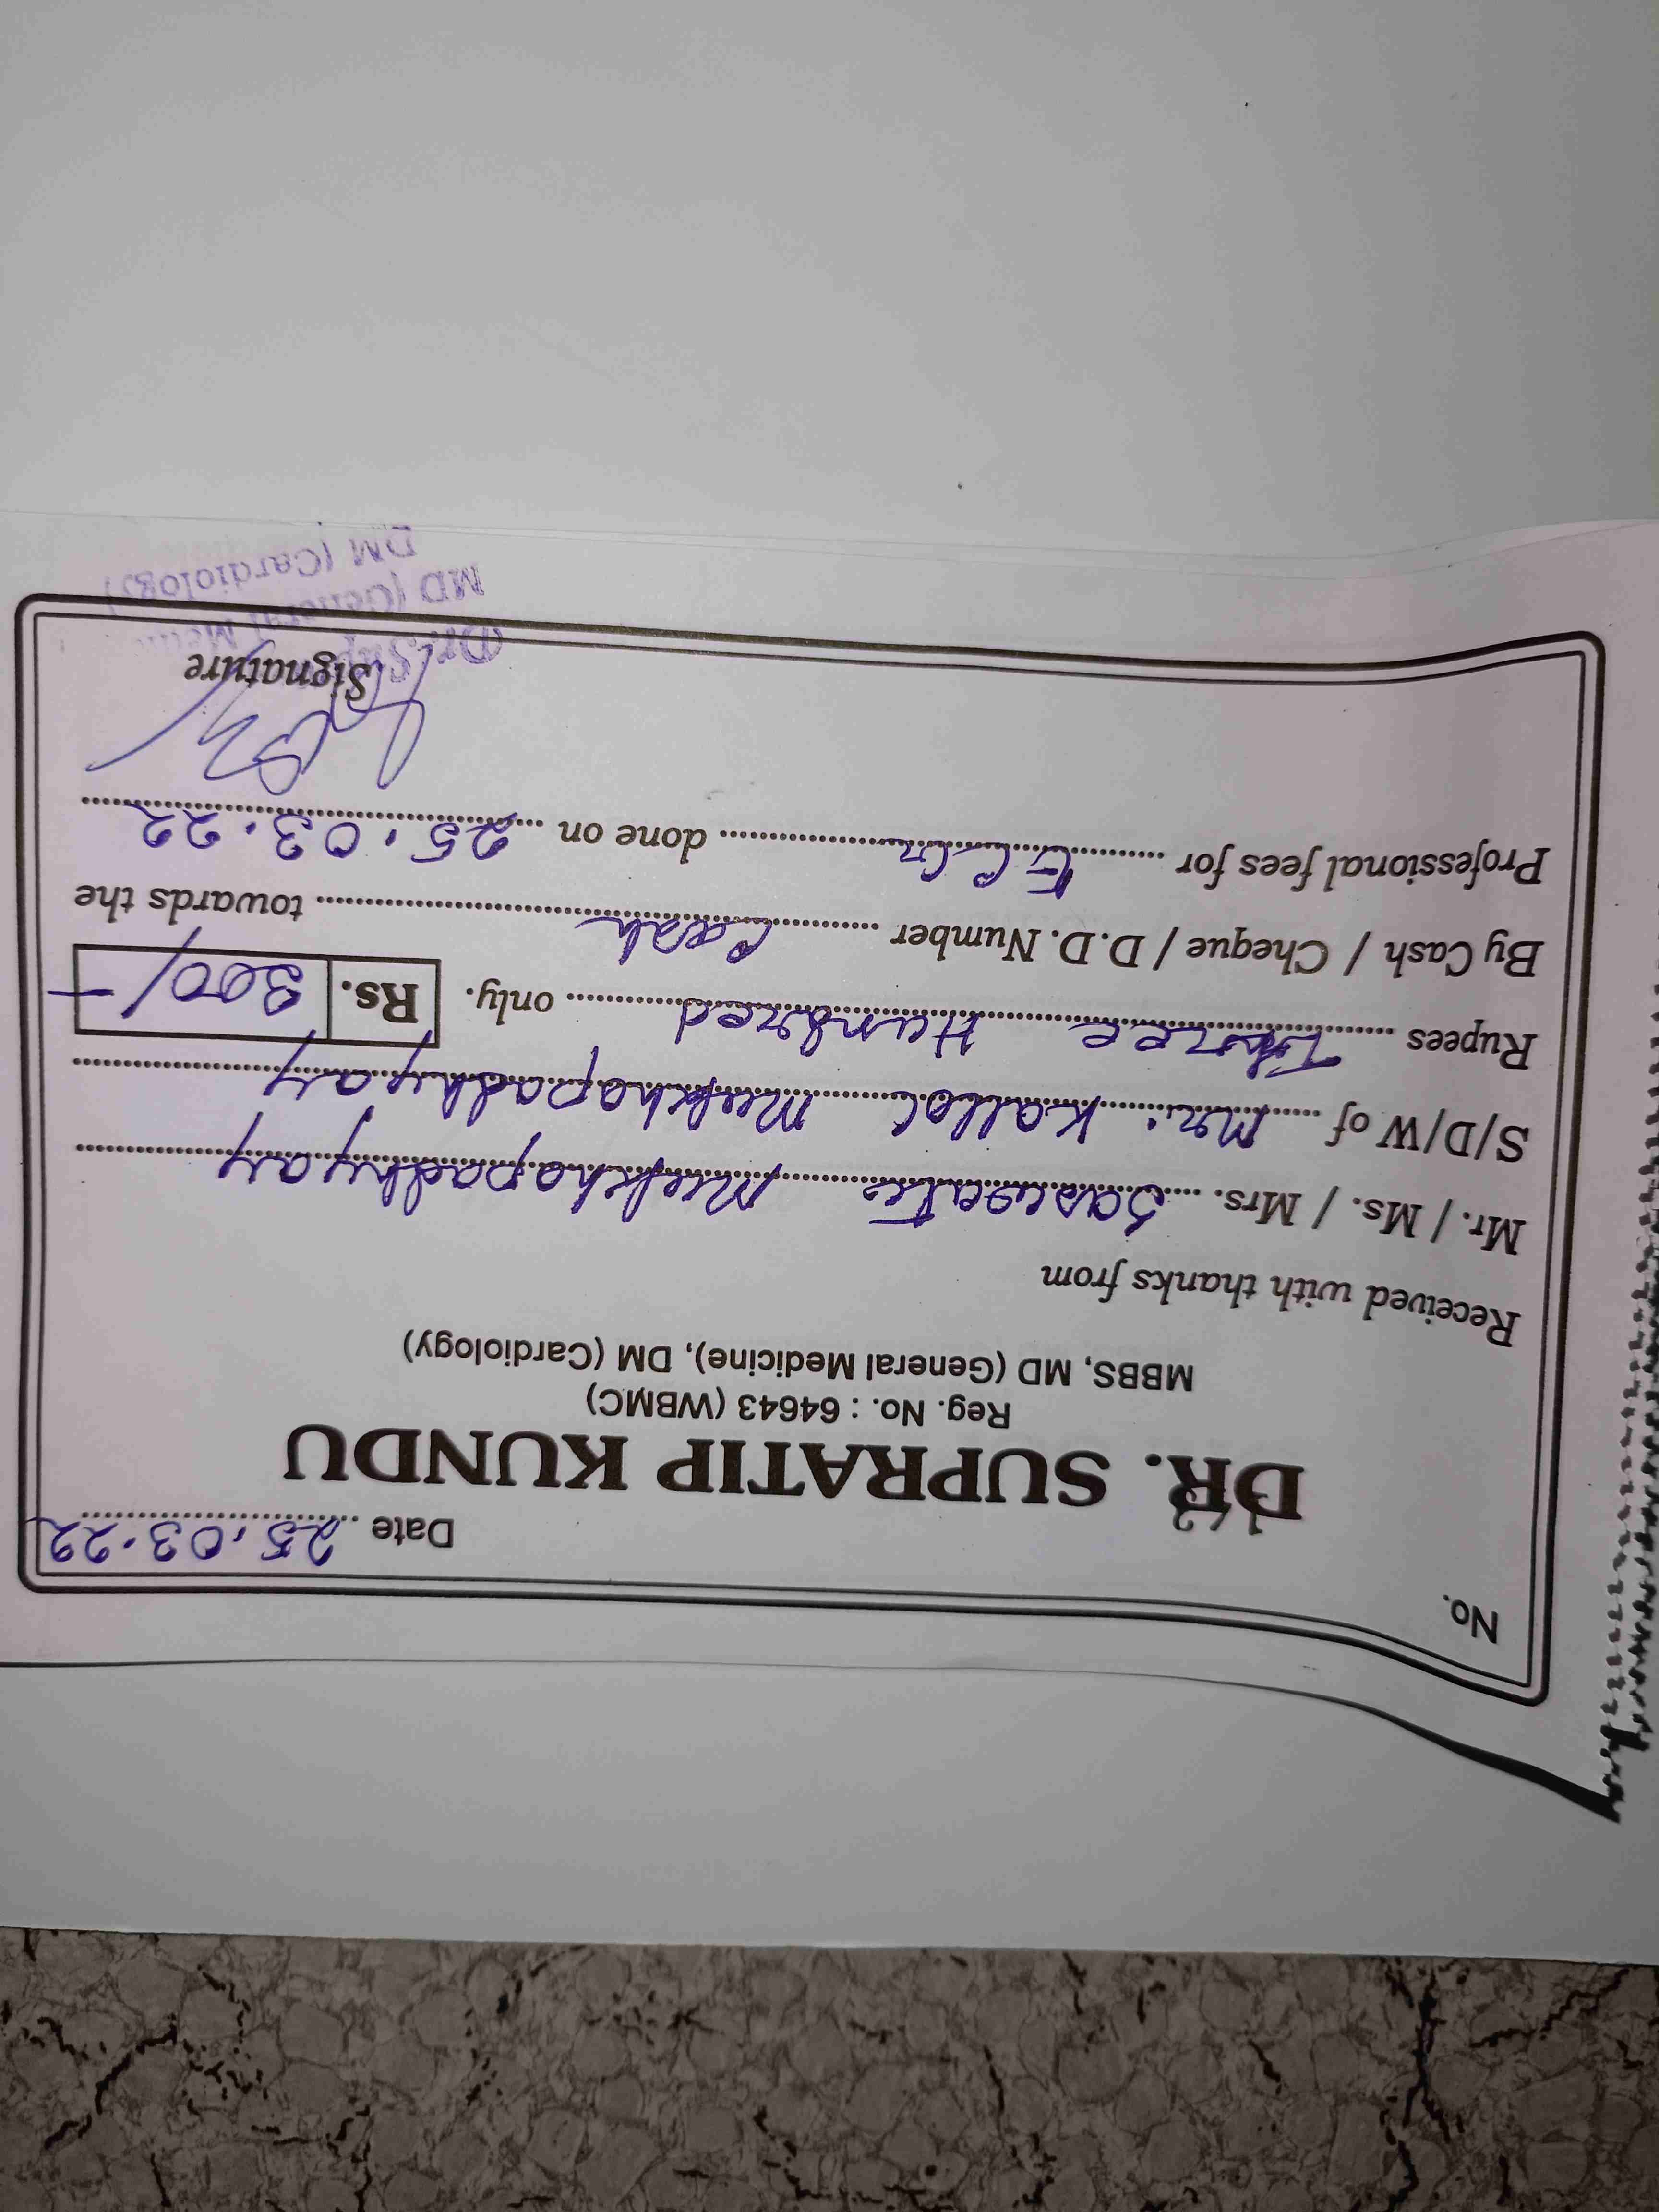 No.
Date 25.03.22
163
DR. SUPRATIP KUNDU
Reg. No. : 64643 (WBMC)
MBBS, MD (General Medicine), DM (Cardiology)
Received with thanks from
Mr. / Ms. / Mrs. Saswata Mukhopadhyay
S/D/W of Mr. Kallol Mukhopadhyay
Rupees Three Hundred only. Rs. 300/-
By Cash / Cheque / D.D. Number Cash towards the
Professional fees for ECG done on 25.03.22
Signature
Dr. Sup
MD (General
DM (Cardiology)